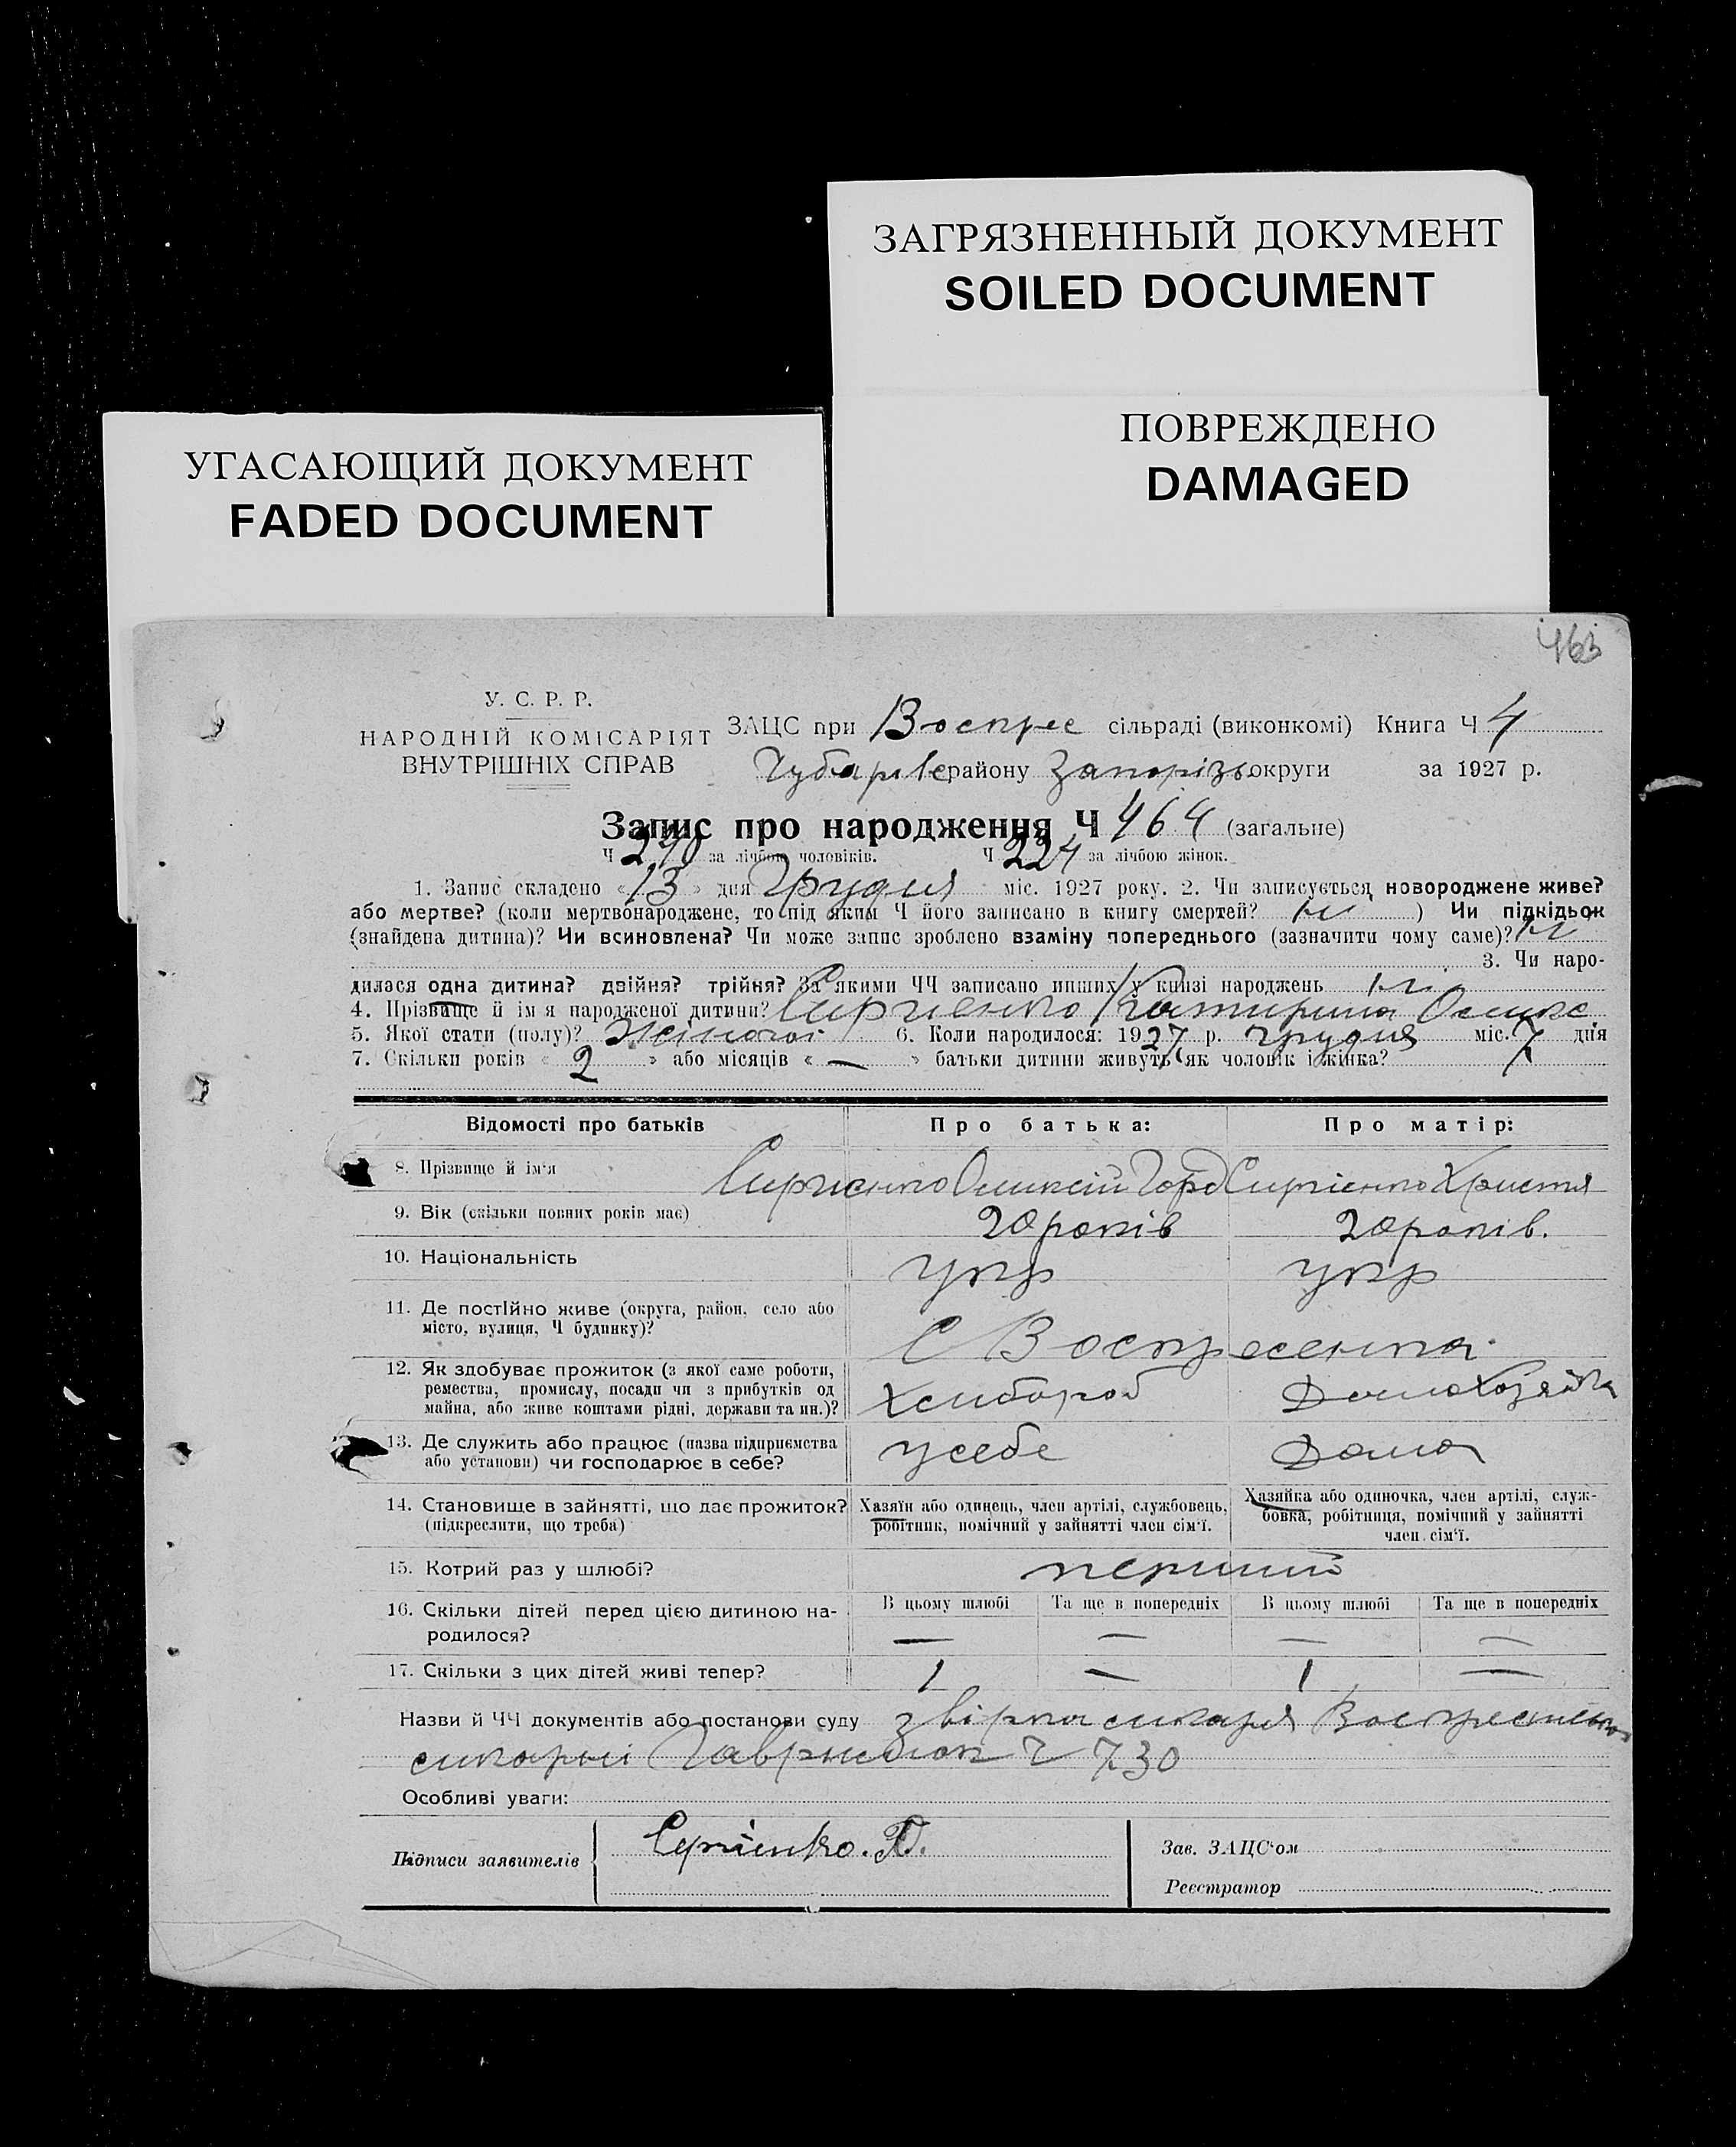 ЗАГРЯЗНЕННЫЙ ДОКУМЕНТ
SOILED DOCUMENT
ПОВРЕЖДЕНО
DAMAGED
УГАСАЮЩИЙ ДОКУМЕНТ
FADED DOCUMENT
463
У. С. Р. Р.
НАРОДНІЙ КОМІСАРІЯТ
ВНУТРІШНІХ СПРАВ
ЗАЦС при Воскрес сільраді (виконкомі) Книга Ч 4
Чубарівс району Запорізь округи за 1927 р.
Запис про народження Ч 464 (загальне)
Ч 240 за лічбою чоловіків. Ч 224 за лічбою жінок.
1. Запис складено « 13 » дня Грудня міс. 1927 року. 2. Чи записується новороджене живе?
або мертве? (коли мертвонароджене, то під яким Ч його записано в книгу смертей? ні ) Чи підкідьок
(знайдена дитина)? Чи всиновлена? Чи може запис зроблено взаміну попереднього (зазначити чому саме)? ні
3. Чи наро-
дилася одна дитина? двійня? трійня? За якими ЧЧ записано инших у книзі народжень ні
4. Прізвище й ім я народженої дитини? Сиргиенко Катирина Олик
5. Якої стати (полу)? Жіночої 6. Коли народилося: 1927 р. грудня міс. 7 дня
7. Скільки років « 2 » або місяців « — » батьки дитини живуть як чоловік і жінка?
Відомості про батьків Про батька: Про матір:
8. Прізвище й ім'я Сиргиенко Оликсій Горд Сиргієнко Христя
9. Вік (скільки повних років має) 20 років 20 років.
10. Національність укр укр
11. Де постійно живе (округа, район, село або
місто, вулиця, Ч будинку)? С Воскресенка
12. Як здобуває прожиток (з якої саме роботи,
ремества, промислу, посади чи з прибутків од
майна, або живе коштами рідні, держави та ин.)? Хлібороб Домохозяйка
13. Де служить або працює (назва підприємства
або установи) чи господарює в себе? у себе Дома
14. Становище в зайнятті, що дає прожиток?
(підкреслити, що треба)
Хазяїн або одинець, член артілі, службовець,
робітник, помічний у зайнятті член сім'ї.
Хазяйка або одиночка, член артілі, служ-
бовка, робітниця, помічний у зайнятті
член сім'ї.
15. Котрий раз у шлюбі? перший
В цьому шлюбі Та ще в попередніх В цьому шлюбі Та ще в попередніх
16. Скільки дітей перед цією дитиною на-
родилося? — — — —
17. Скільки з цих дітей живі тепер? 1 — 1 —
Назви й ЧЧ документів або постанови суду
Ч 730
Особливі уваги:
Підписи заявителів Сергієнко. А.
Зав. ЗАЦС'ом
Реєстратор